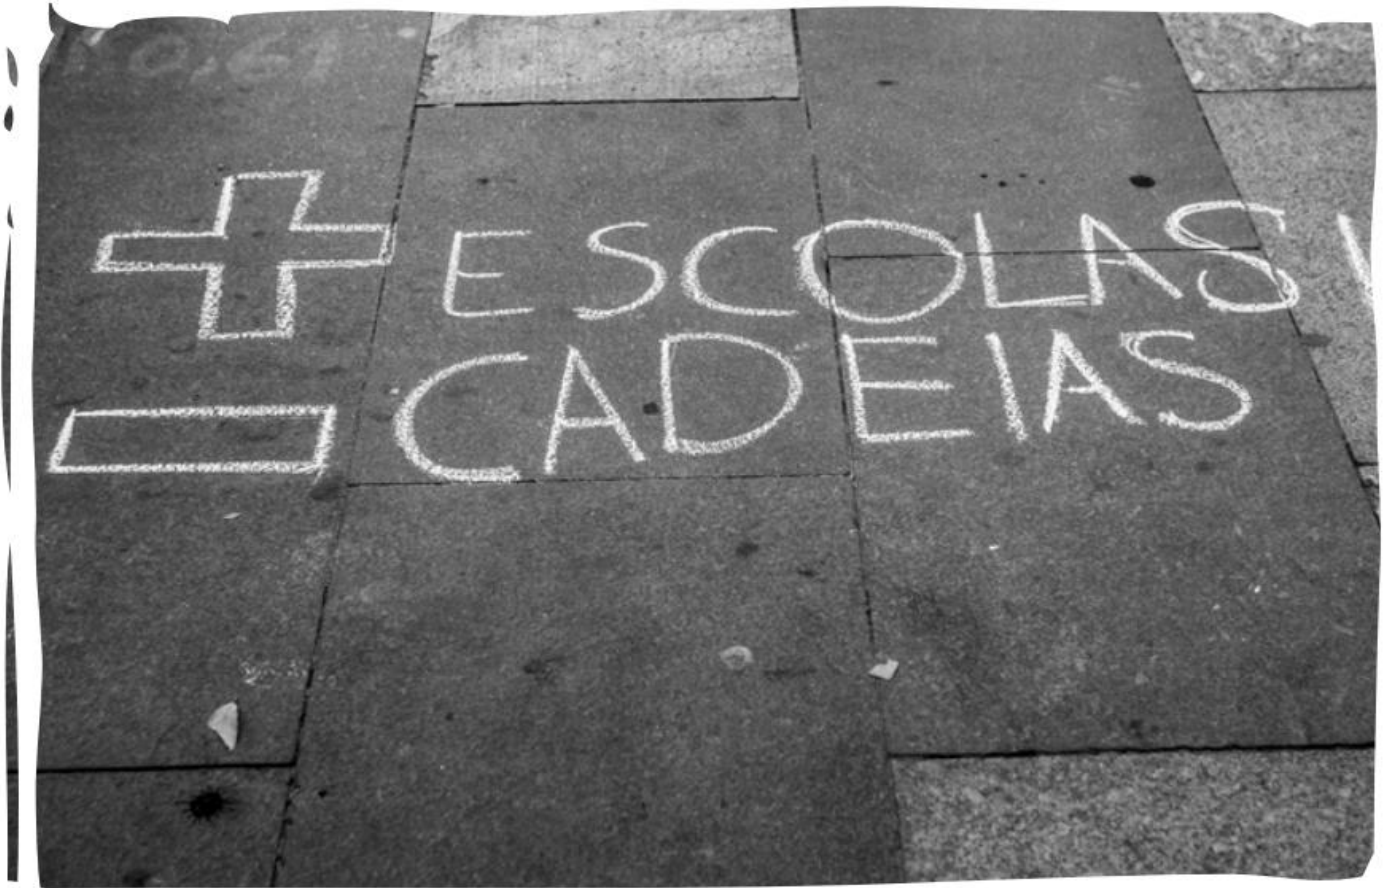 + ESCOLAS
- CADEIAS